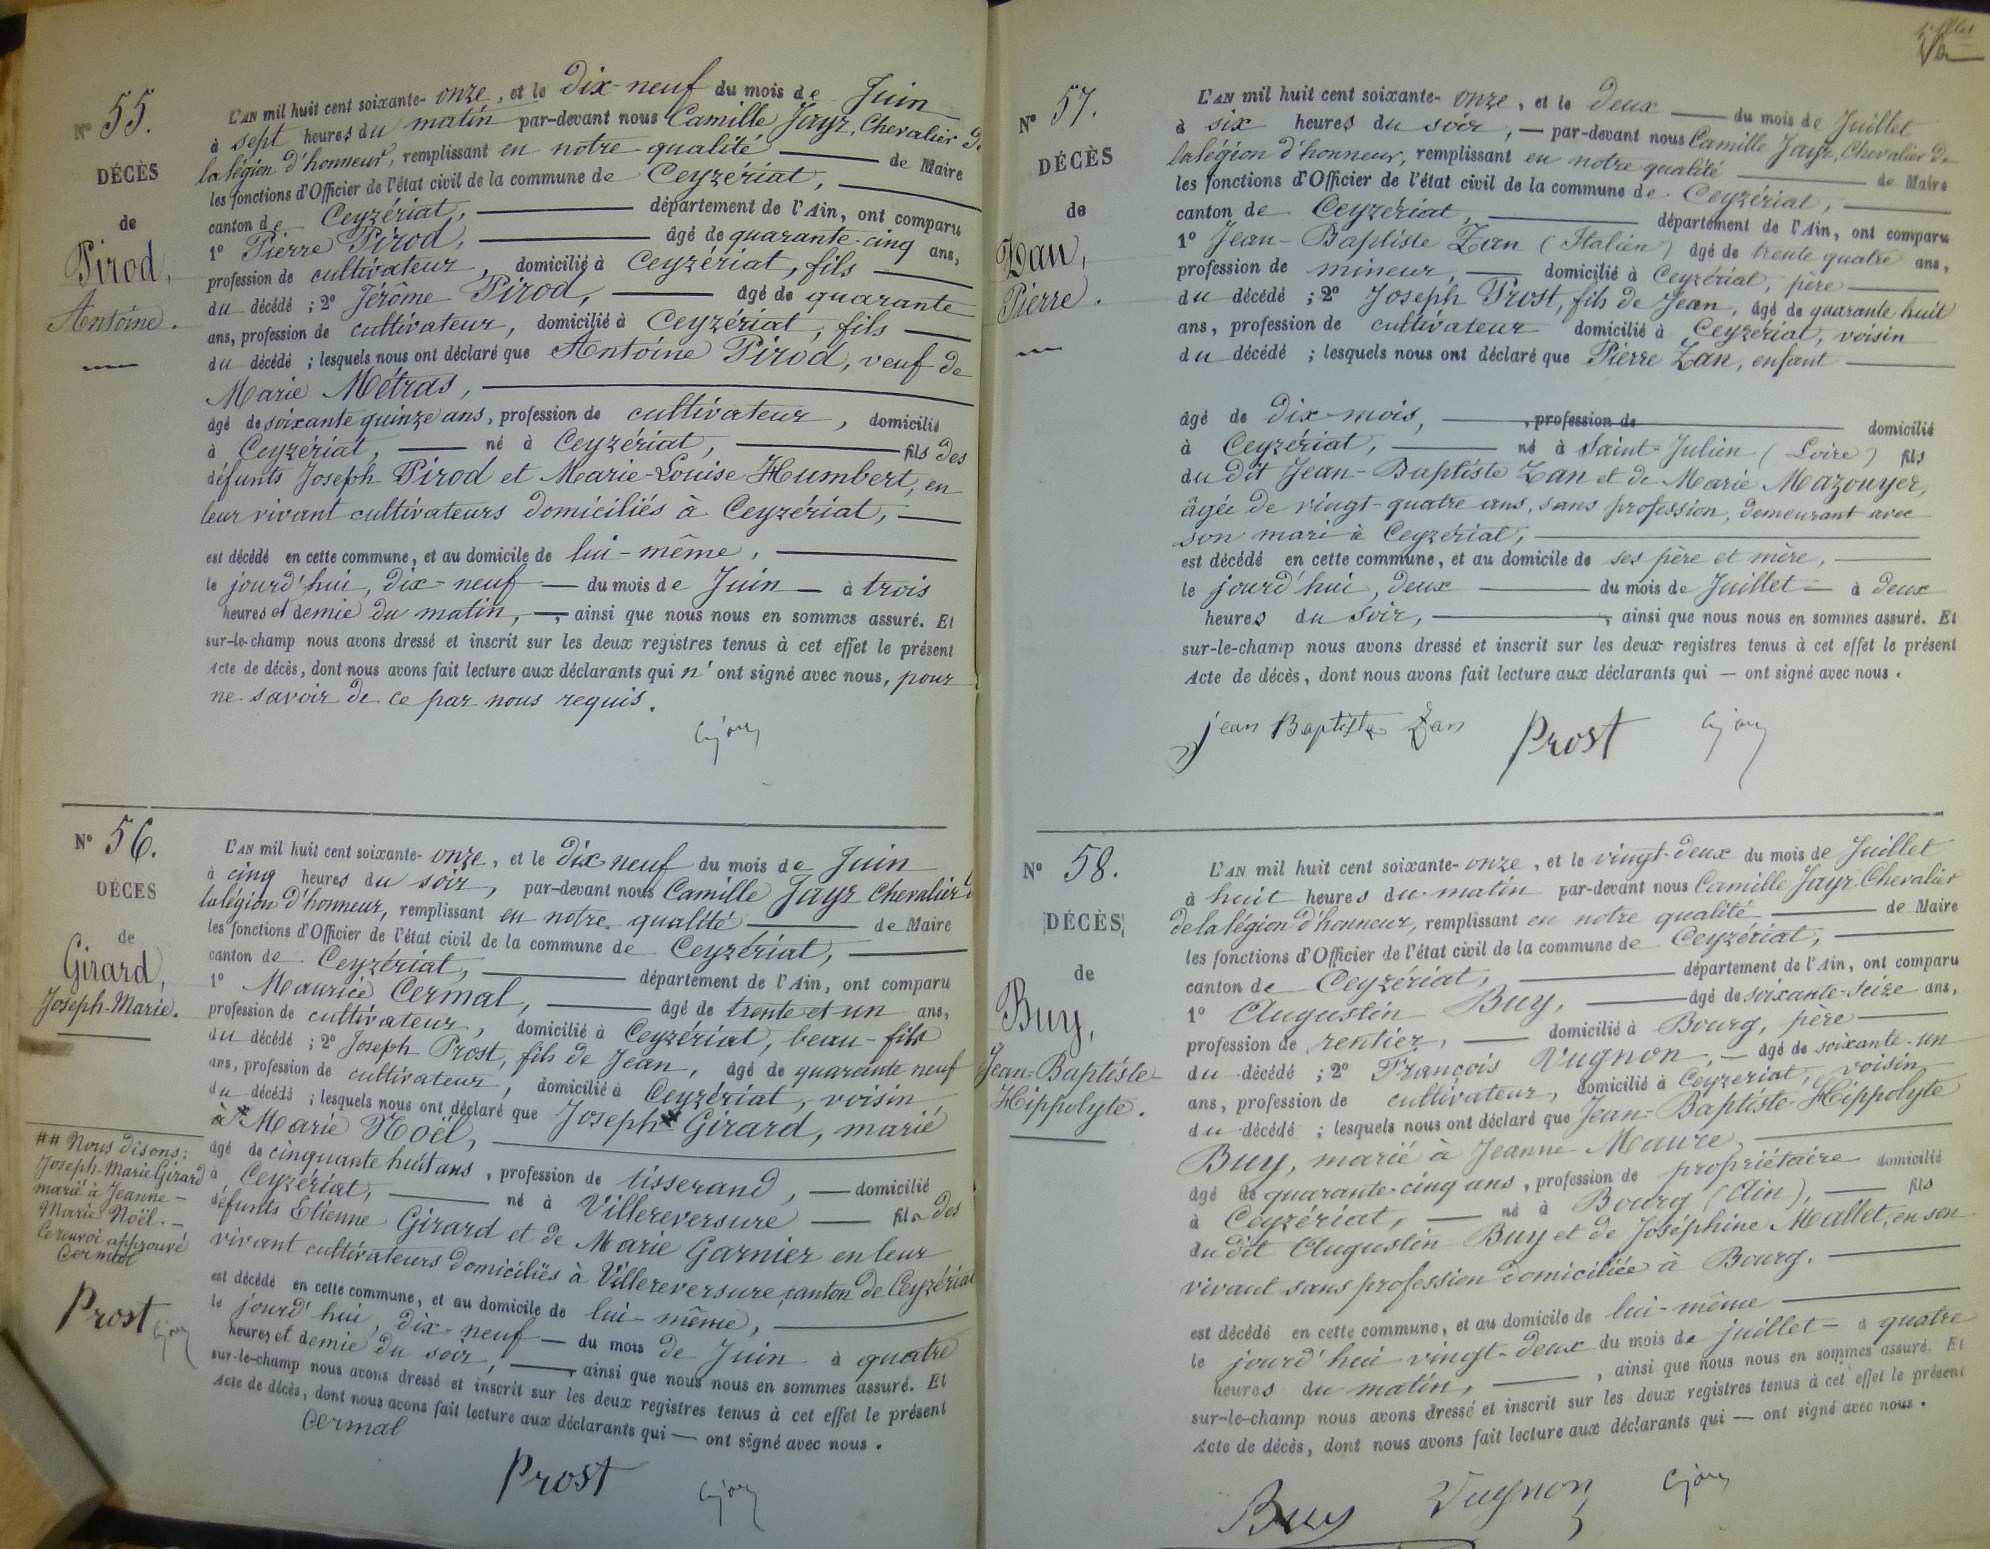 N° 55.
DÉCÈS
de
Pirod,
Antoine.
L'AN mil huit cent soixante- onze, et le Dix-neuf du mois de Juin
à sept heures du matin par-devant nous Camille Jayr, Chevalier de
la légion d'honneur, remplissant en notre qualité de Maire
les fonctions d'Officier de l'état civil de la commune de Ceyzériat,
canton de Ceyzériat, département de l'Ain, ont comparu
1° Pierre Pirod, âgé de quarante-cinq ans,
profession de cultivateur, domicilié à Ceyzériat, fils
du décédé ; 2° Jérôme Pirod, âgé de quarante
ans, profession de cultivateur, domicilié à Ceyzériat, fils
du décédé ; lesquels nous ont déclaré que Antoine Pirod, veuf de
Marie Métras,
âgé de soixante quinze ans, profession de cultivateur, domicilié
à Ceyzériat, né à Ceyzériat, fils des
défunts Joseph Pirod et Marie-Louise Humbert, en
leur vivant cultivateurs domiciliés à Ceyzériat,
est décédé en cette commune, et au domicile de lui-même,
le jourd'hui, dix-neuf du mois de Juin à trois
heures et demie du matin, ainsi que nous nous en sommes assuré. Et
sur-le-champ nous avons dressé et inscrit sur les deux registres tenus à cet effet le présent
Acte de décès, dont nous avons fait lecture aux déclarants qui n'ont signé avec nous, pour
ne savoir de ce par nous requis.
N° 56.
DÉCÈS
de
Girard,
Joseph-Marie.
L'AN mil huit cent soixante- onze, et le dix neuf du mois de Juin
à cinq heures du soir, par-devant nous Camille Jayr Chevalier
la légion d'honneur, remplissant en notre qualité de Maire
les fonctions d'Officier de l'état civil de la commune de Ceyzériat,
canton de Ceyzériat, département de l'Ain, ont comparu
1° Maurice Cermal, âgé de trente et un ans,
profession de cultivateur, domicilié à Ceyzériat, beau-fils
du décédé ; 2° Joseph Prost, fils de Jean, âgé de quarante neuf
ans, profession de cultivateur, domicilié à Ceyzériat, voisin
du décédé ; lesquels nous ont déclaré que Joseph # Girard, marié
à # Marie Noël,
âgé de cinquante huit ans, profession de tisserand, domicilié
à Ceyzériat, né à Villereversure fils des
défunts Etienne Girard et de Marie Garnier en leur
vivant cultivateurs domiciliés à Villereversure, canton de Ceyzériat
est décédé en cette commune, et au domicile de lui-même,
le jourd'hui, dix-neuf du mois de Juin à quatre
heures et demie du soir, ainsi que nous nous en sommes assuré. Et
sur-le-champ nous avons dressé et inscrit sur les deux registres tenus à cet effet le présent
Acte de décès, dont nous avons fait lecture aux déclarants qui — ont signé avec nous.
Cermal
Prost
## Nous disons:
Joseph-Marie Girard
marié à Jeanne-
Marie Noël.
Ce renvoi approuvé
Cermal
Prost
N° 57.
DÉCÈS
de
Zan,
Pierre.
L'AN mil huit cent soixante- onze, et le deux du mois de Juillet
à six heures du soir, par-devant nous Camille Jayr, Chevalier de
la légion d'honneur, remplissant en notre qualité de Maire
les fonctions d'Officier de l'état civil de la commune de Ceyzériat,
canton de Ceyzériat, département de l'Ain, ont comparu
1° Jean-Baptiste Zan (Italien) âgé de trente quatre ans,
profession de mineur, domicilié à Ceyzériat, père
du décédé ; 2° Joseph Prost, fils de Jean, âgé de quarante huit
ans, profession de cultivateur domicilié à Ceyzériat, voisin
du décédé ; lesquels nous ont déclaré que Pierre Zan, enfant
âgé de dix-mois, profession de domicilié
à Ceyzériat, né à Saint-Julien (Loire) fils
du dit Jean-Baptiste Zan et de Marie Mazouyer,
âgée de vingt-quatre ans, sans profession, demeurant avec
son mari à Ceyzériat,
est décédé en cette commune, et au domicile de ses père et mère,
le jourd'hui, deux du mois de Juillet à deux
heures du soir, ainsi que nous nous en sommes assuré. Et
sur-le-champ nous avons dressé et inscrit sur les deux registres tenus à cet effet le présent
Acte de décès, dont nous avons fait lecture aux déclarants qui — ont signé avec nous.
jean Baptiste Zan Prost
N° 58.
DÉCÈS
de
Buy,
Jean-Baptiste-
Hippolyte.
L'AN mil huit cent soixante- onze, et le vingt-deux du mois de Juillet
à huit heures du matin par-devant nous Camille Jayr Chevalier
de la légion d'honneur, remplissant en notre qualité de Maire
les fonctions d'Officier de l'état civil de la commune de Ceyzériat,
canton de Ceyzériat, département de l'Ain, ont comparu
1° Augustin Buy, âgé de soixante-seize ans,
profession de rentier, domicilié à Bourg, père
du décédé ; 2° François Vugnon, âgé de soixante-un
ans, profession de cultivateur, domicilié à Ceyzeriat, voisin
du décédé ; lesquels nous ont déclaré que Jean-Baptiste Hippolyte
Buy, marié à Jeanne Maure,
âgé de quarante-cinq ans, profession de propriétaire domicilié
à Ceyzériat, né à Bourg (Ain), fils
du dit Augustin Buy et de Joséphine Mallet, en son
vivant sans profession domiciliée à Bourg.
est décédé en cette commune, et au domicile de lui-même
le jourd'hui vingt-deux du mois de juillet à quatre
heures du matin, ainsi que nous nous en sommes assuré. Et
sur-le-champ nous avons dressé et inscrit sur les deux registres tenus à cet effet le présent
Acte de décès, dont nous avons fait lecture aux déclarants qui — ont signé avec nous.
Buy Vugnon